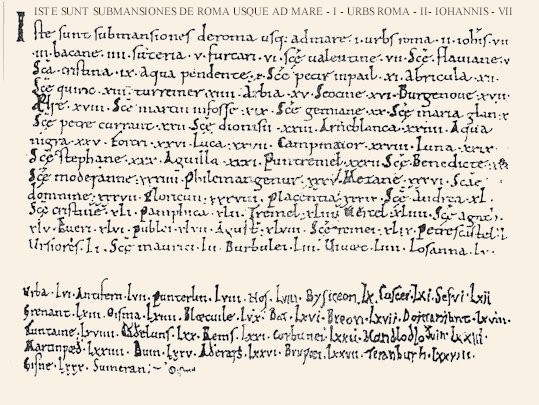 ISTE SUNT SUBMANSIONES DE ROMA USQUE AD MARE - I - URBS ROMA - II- IOHANNIS - VII
Iste sunt submansiones de roma usq; ad mare .i. urbs roma .ii. iohis .vii
.iii. bacane .iiii. suteria .v. furcari .vi. sce ualentine .vii. sce flauiane .v
Sca cristina .ix. aqua pendente .x. sce petir inpail .xi. abricula .xii.
Sce quiric .xiii. turreiner .xiiii. Arbia .xv. Seocine .xvi. Burgenoue .xvii
.xviii. sce martin infosse .xix. Sce gemiane .xx. Sce maria glan .x
Sce petre currant .xxii. Sce dionisii .xxiii. Arneblanca .xxiiii. Aqua
nigra .xxv. forcri .xxvi. Luca .xxvii. Campmaior .xxviii. Luna .xxix
Sce stephane .xxx. Aguilla .xxxi. Puntremel .xxxii. Sce Benedicte
Sce moderanne .xxxiiii. philemangenur .xxxv. Metane .xxxvi. Sce
domnine .xxxvii. floricun .xxxviii. placentia .xxxix. Sce Andrea .xl.
Sce cristine .xli. pamphica .xlii. Tremel .xliii. Uercel .xliiii. Sce agath
.xlv. Everi .xlvi. publei .xlvii. Agust .xlviii. Sce remei .xlix. petrescastel .l.
Ursiores .li. Sce maurici .lii. Burbulei .liii. Uiuaec .liiii. Losanna .lv.
Urba .lvi. Antifern .lvii. punterlin .lviii. Nos .lviiii. Bysiceon .lx. Cuscei .lxi. Sefui .lxii
Grenant .lxiii. Oisma .lxiiii. Blaecuile .lxv. Bar .lxvi. Breon .lxvii. Domaniant .lxviii.
funtaine .lxviiii. Cateluns .lxx. Rems .lxxi. Corbunei .lxxii. Mandlodluin .lxxiii.
Martinwaed .lxxiiii. Duin .lxxv. Aderats .lxxvi. Bruwaei .lxxvii. Teranburh .lxxviii.
Gisne .lxxx. Sumeran :~